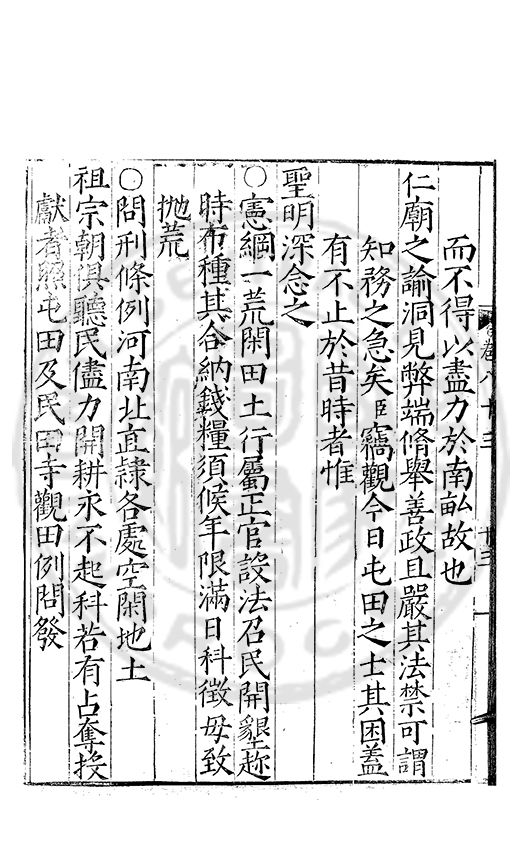 卷八十三　十三
而不得以盡力於南畝故也
仁廟之諭洞見弊端脩舉善政且嚴其法禁可謂
知務之急矣臣竊觀今日屯田之士其困蓋
有不止於昔時者惟
聖明深念之
○憲綱一荒閑田土行屬正官設法召民開墾趂
時布種其合納錢糧須候年限滿日科徵毋致
抛荒
○問刑條例河南北直隸各處空閑地土
祖宗朝俱聽民儘力開耕永不起科若有占奪投
獻者照屯田及民田寺觀田例問發